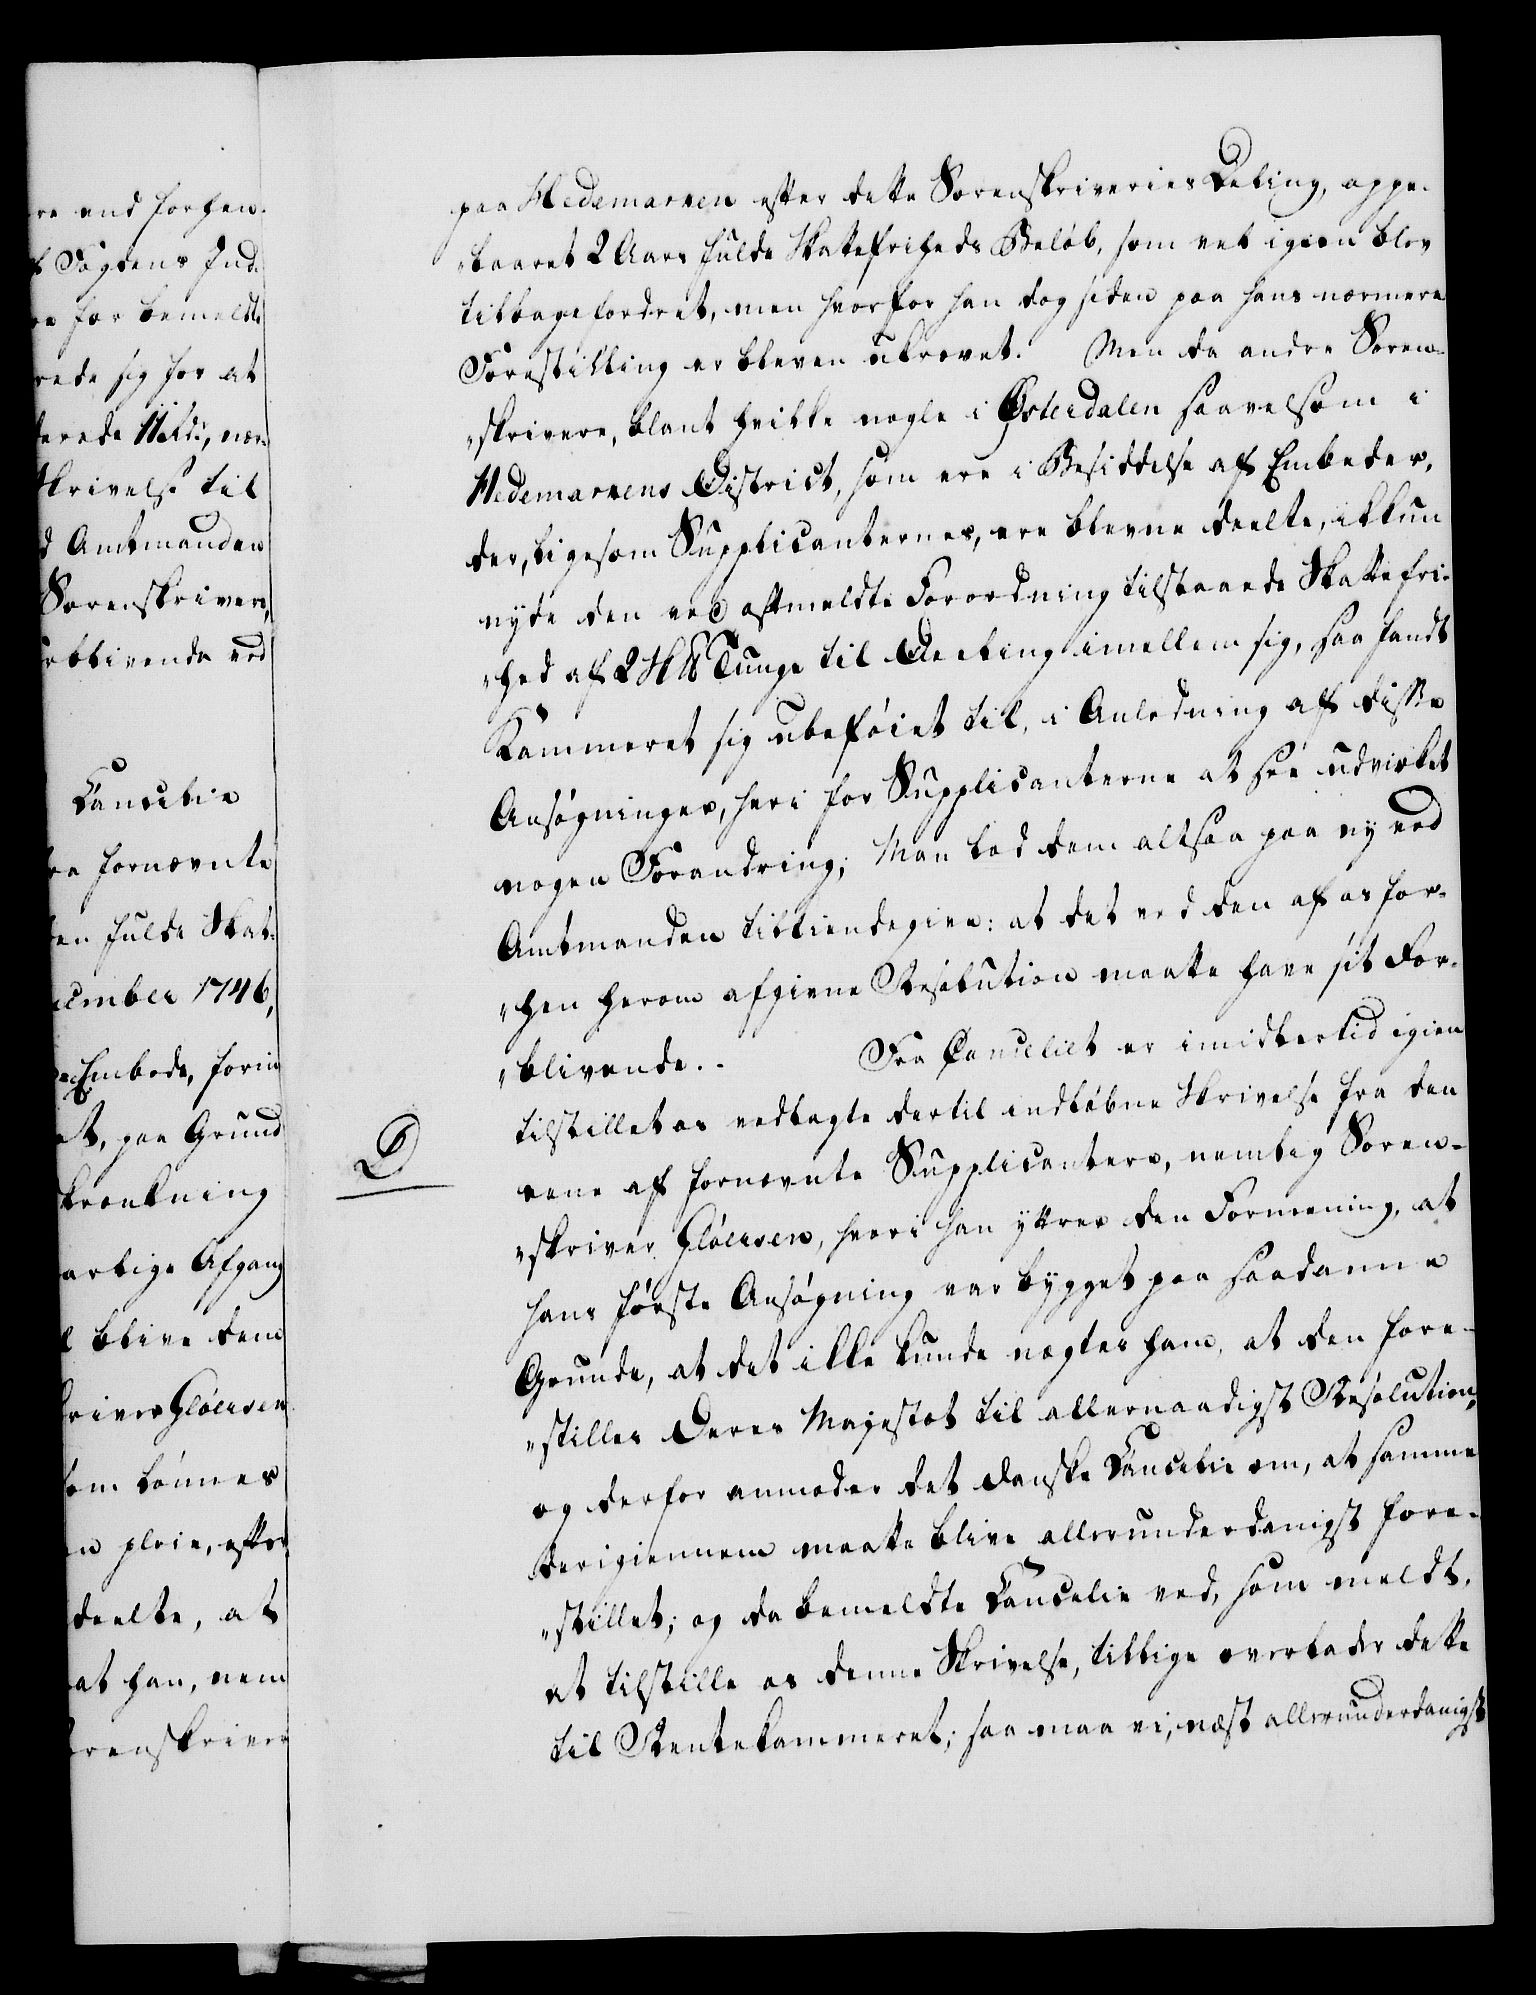 re end forhen
t Fogdens Ind-
re for bemeldte
rede sig for at
derede Wilds, nær
Skrivelse til
d Amtmanden
Sorenskrivere,
rblivende ved
Cancelie
paa fornævnte
den fulde Skat-
cember 1746,
Embede, form
et, paa Grund
krænkning
artige Afgang
l blive dem
kriver Gløersen
som bønnes
en pleie, efter
deelte, at
at han, nem
orenskriver
paa Hedemarken efter dette Sorenskriveries Deling, oppe-
baaret 2 Aars fulde Skattefriheds Beløb, som vel igien blev
tilbagefordret, men hvorfor han dog siden paa hans nærmere
Forestilling er bleven ukrævet. Men da andre Soren-
skrivere, blant hvilke nogle i Østerdalen saavelsom i
Hedemarkens District, som ere i Besiddelse af Embeder,
der, ligesom Supplicanternes, ere blevne deelte, ikkun
nyde den ved oftmeldte Forordning tilstaaede Skattefri-
hed af 2 H Tunge til Deeling imellem sig, saa fandt
Kammeret sig ubeføiet til, i Anledning af disse
Ansøgninger, heri for Supplicanterne at see udvirket
nogen Forandring; Man lod dem altsaa paa ny ved
Amtmanden tilkiendegive: at det ved den af os for-
hen herom afgivne Resolution maatte have sit For-
blivende. Fra Canceliet er imidlertid igien
tilstillet os vedlagte dertil indløbne Skrivelse fra den
D
eene af fornævnte Supplicantere, nemlig Soren-
skriver Gløersen, hvori han yttrer den Formening, at
hans første Ansøgning var bygget paa saadanne
Grunde, at det ikke kunde nægtes ham, at den fore-
stilles Deres Majestæt til allernaadigst Resolution,
og derfor anmoder det danske Cancelie om, at samme
derigiennem maatte blive allerunderdanigst fore-
stillet; og da bemeldte Cancelie ved, som meldt,
at tilstille os denne Skrivelse, tillige overlader dette
til Rentekammeret; saa maa vi, næst allerunderdanigst